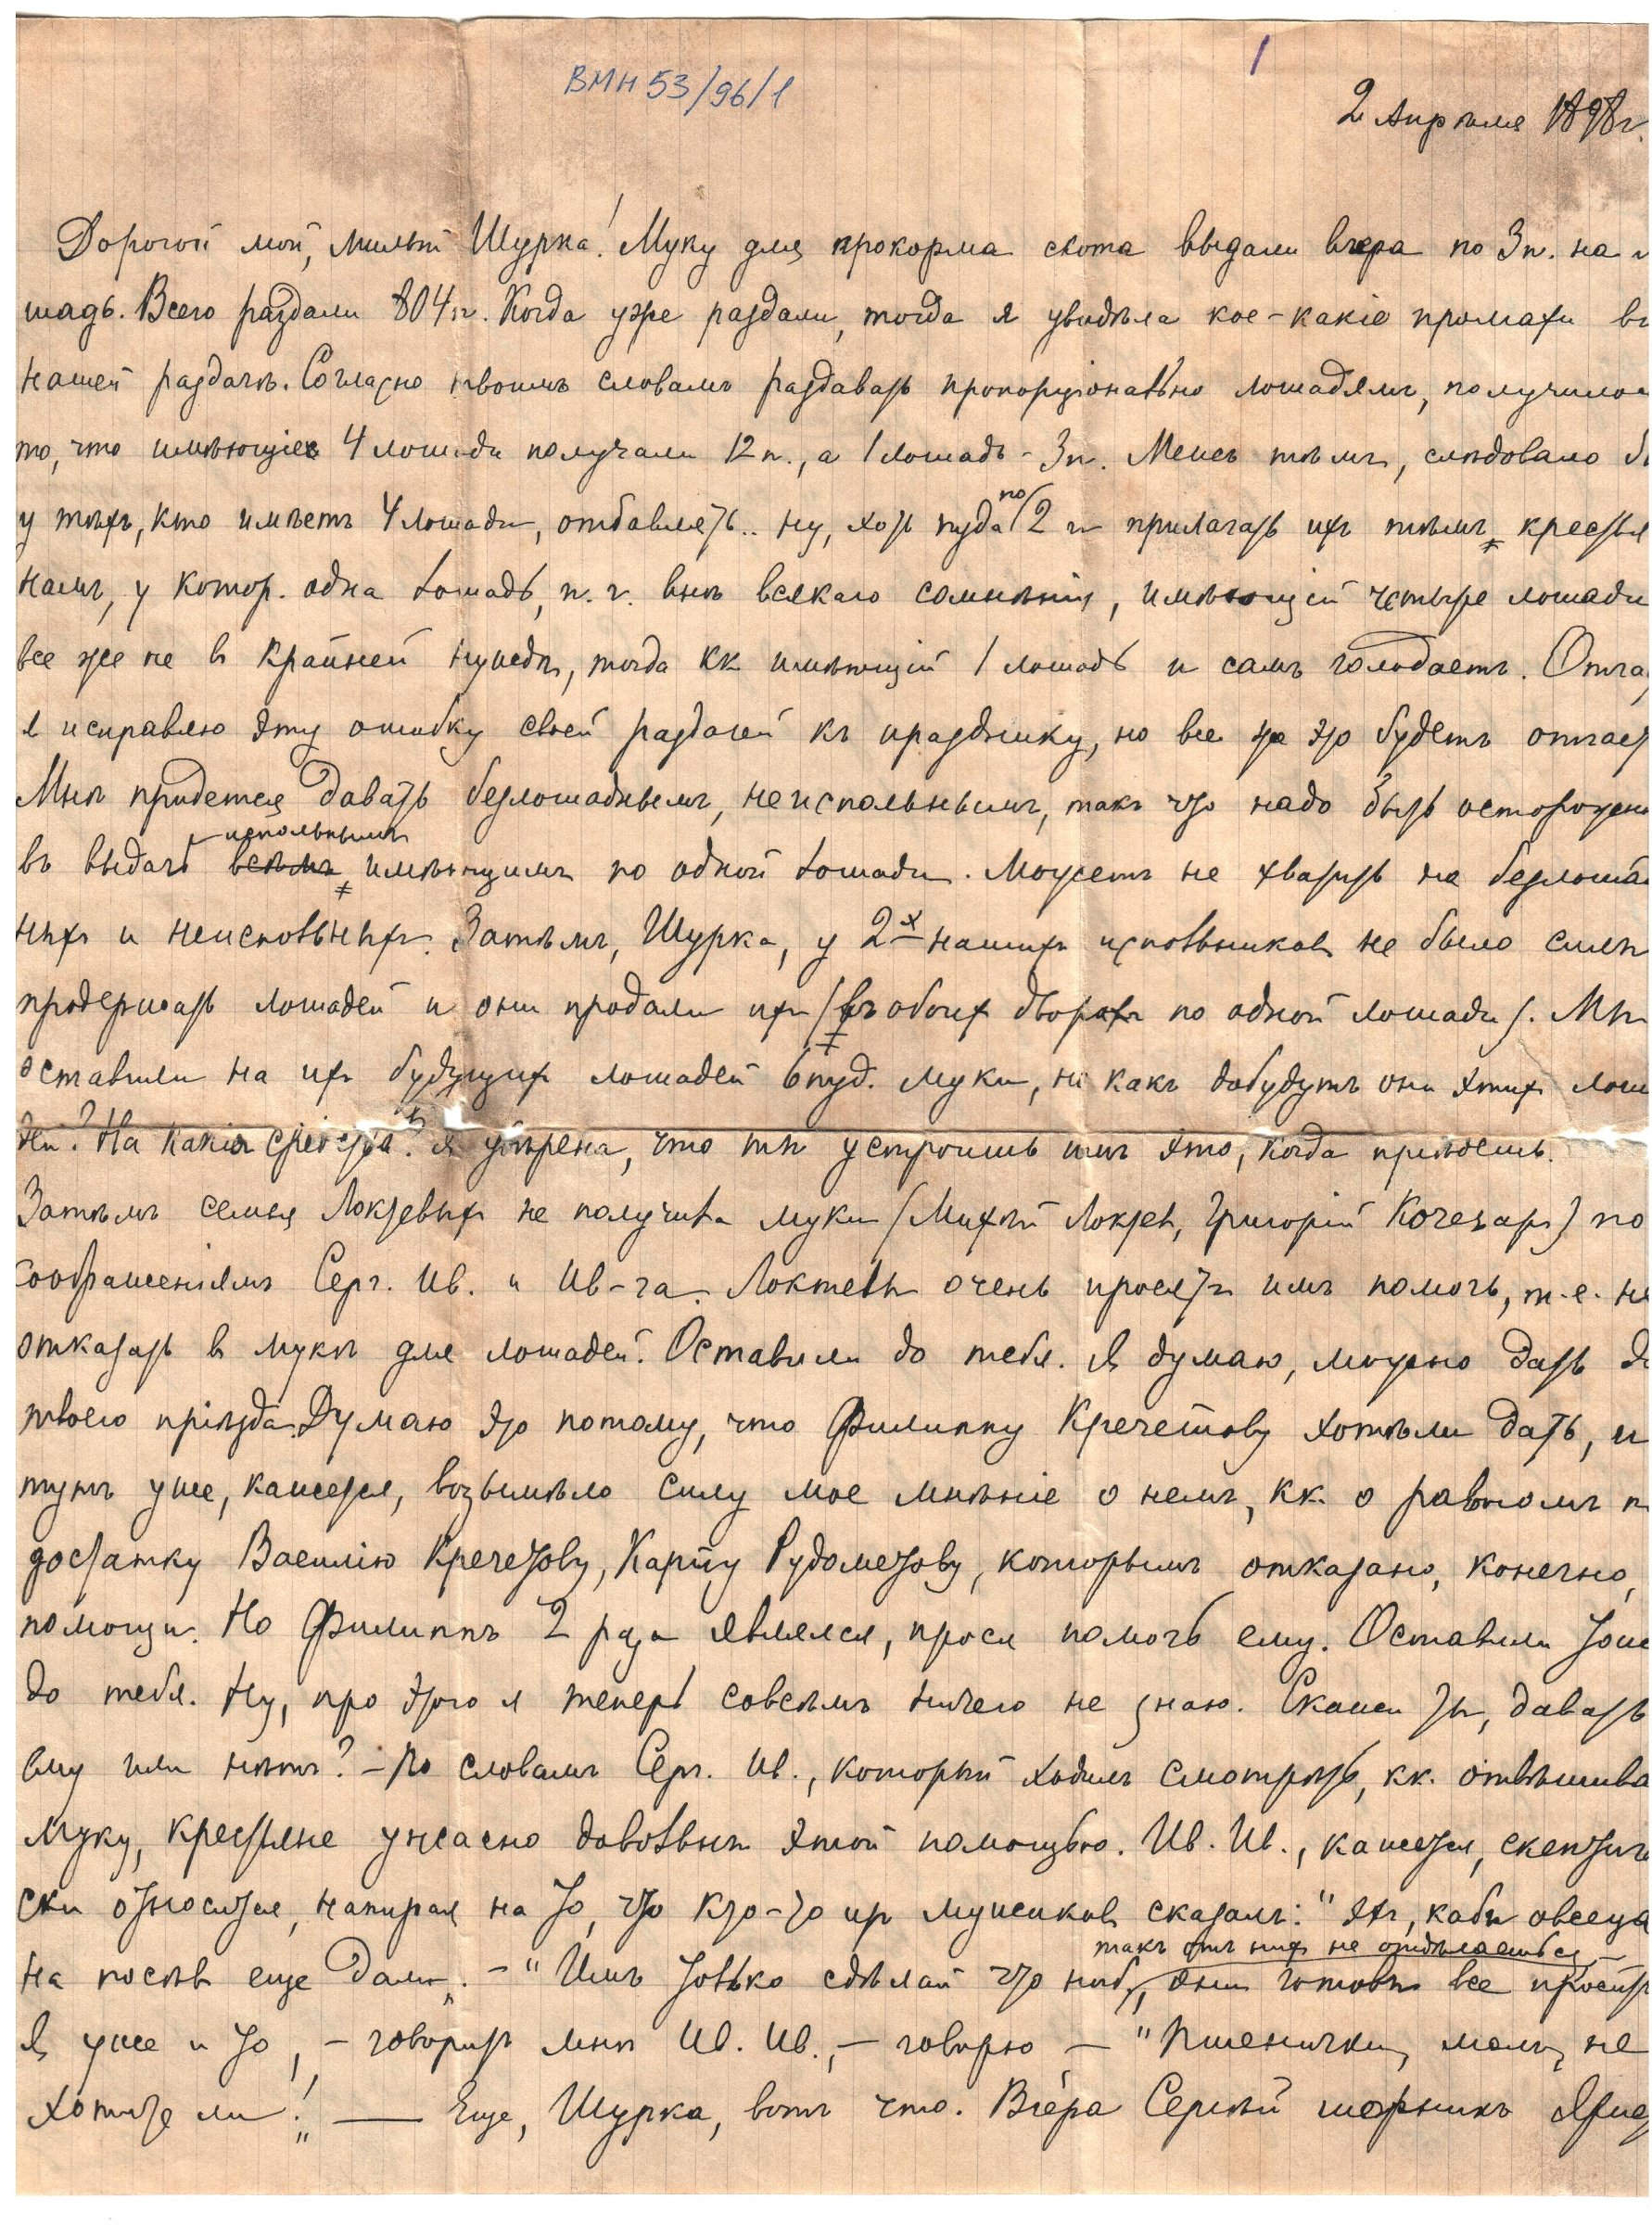 1
ВМН 53/96/1
2 Апрѣля 1898 г.
Дорогой мой, милый Шурка! Муку для прокорма скота выдали вчера по 3 п. на л
шадь. Всего раздали 804 п. Когда уже раздали, тогда я увидѣла кое-какіе промахи въ
нашей раздачѣ. Согласно твоимъ словамъ раздавать пропорціонально лошадямъ, получилос
то, что имѣющіе 4 лошади получали 12 п., а 1 лошадь - 3 п. Межъ тѣмъ, слѣдовало б
у тѣхъ, кто имѣетъ 4 лошади, отбавлять.. ну, хоть пуда по 2 и прилагать ихъ тѣмъ крестья
намъ, у котор. одна лошадь, п. ч. внѣ всякаго сомнѣнія, имѣющій четыре лошади
все же не в крайней нуждѣ, тогда кк имѣющій 1 лошадь и самъ голодаетъ. Отча
я исправлю эту ошибку своей раздачей къ празднику, но все же это будетъ отчаст
Мнѣ придется давать безлошаднымъ, неиспольнымъ, такъ что надо быть осторожн
въ выдачѣ всѣмъ испольнымъ имѣющимъ по одной лошади. Можетъ не хватить на безлошад
ныхъ и неиспольныхъ. Затѣмъ, Шурка, у 2-х нашихъ испольниковъ не было силы
продержать лошадей и они продали ихъ (въ обоих дворахъ по одной лошади). Мы
оставили на ихъ будущих лошадей 6 пуд. муки, но какъ добудутъ они этих лоша
ди? На какія средства? Я увѣрена, что ты устроишь имъ это, когда пріѣдешь.
Затѣмъ семья Локтевыхъ не получила муки (Михей Локтев, Григорій Кочегаръ) по
соображеніямъ Серг. Ив. и Ив-ча. Локтевы очень просятъ имъ помочь, т.е. не
отказать в мукѣ для лошадей. Оставили до тебя. Я думаю, можно дать д
твоего пріѣзда. Думаю это потому, что Филиппу Кречетову хотѣли дать, и
тутъ уже, кажется, возымѣло силу мое мнѣніе о немъ, кк. о равномъ п
достатку Василію Кречетову, Карпу Рудометову, которымъ отказано, конечно,
помощи. Но Филиппъ 2 раза являлся, прося помочь ему. Оставили тоже
до тебя. Ну, про этого я теперь совсѣмъ ничего не знаю. Скажи ты, давать
ему или нѣтъ? - По словамъ Серг. Ив., который ходилъ смотрѣть, кк. отвѣшива
муку, крестьяне ужасно довольны этой помощью. Ив. Ив., кажется, скептиче
ски относится, напирая на то, что кто-то из мужиков сказалъ: "Эх, кабы овсеца
на посѣв еще дали". - "Имъ только сдѣлай что ниб., такъ отъ нихъ не отдѣлаешься - они готовы все просить
Я уже и то, - говоритъ мнѣ Ив. Ив., - говорю - "Пшенички, молъ, не
хотите ли!" — Еще, Шурка, вотъ что. Вчера Сергѣй шорникъ